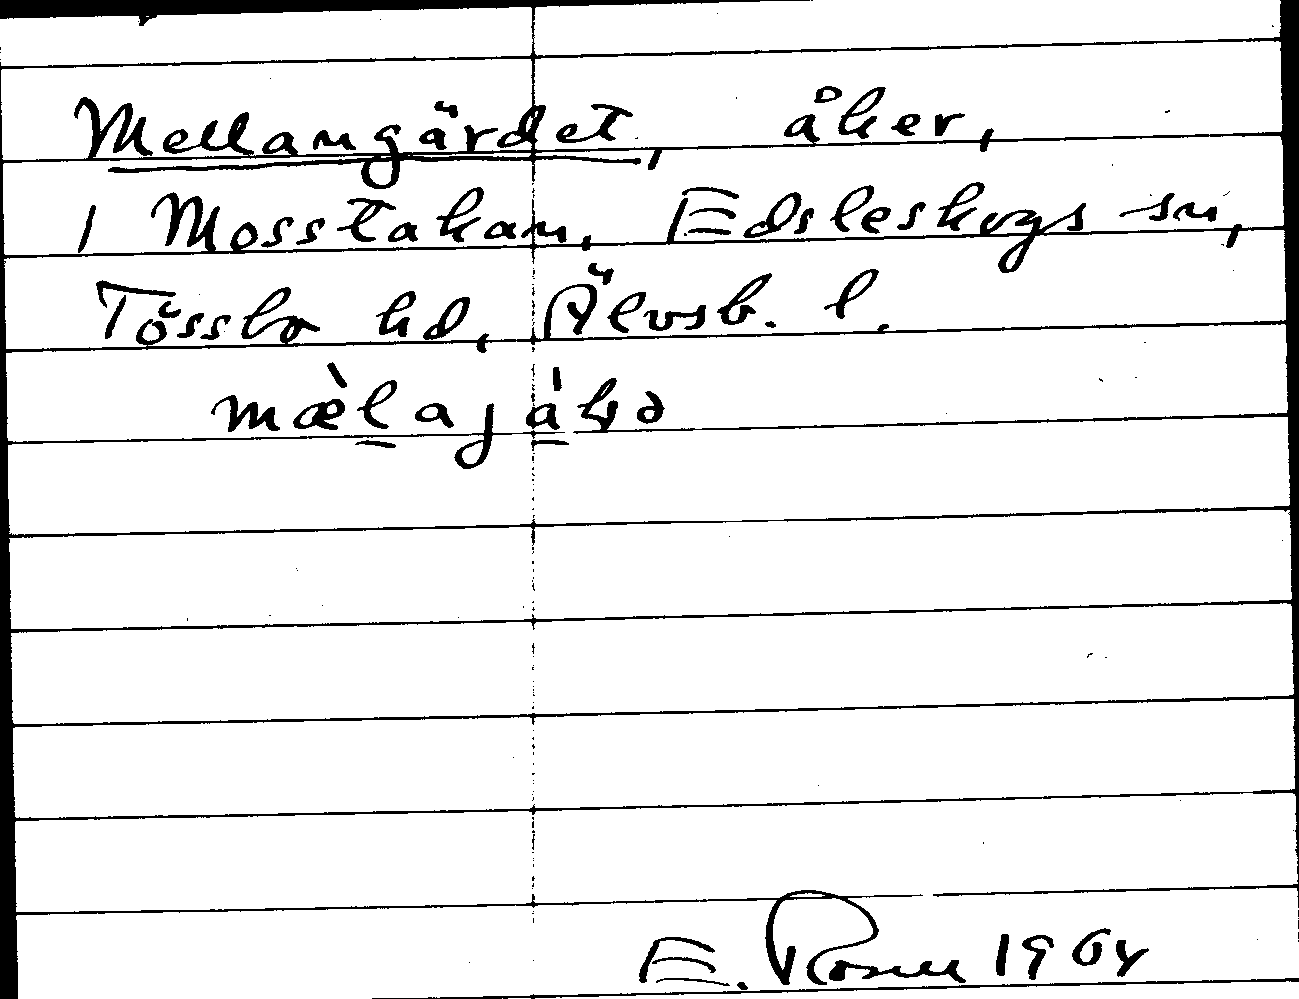 Mellangärdet, åker,
i Mosstakan, Edsleskogs sn,
Tössbo hd, Älvsb. l.
E. Rosell 1964